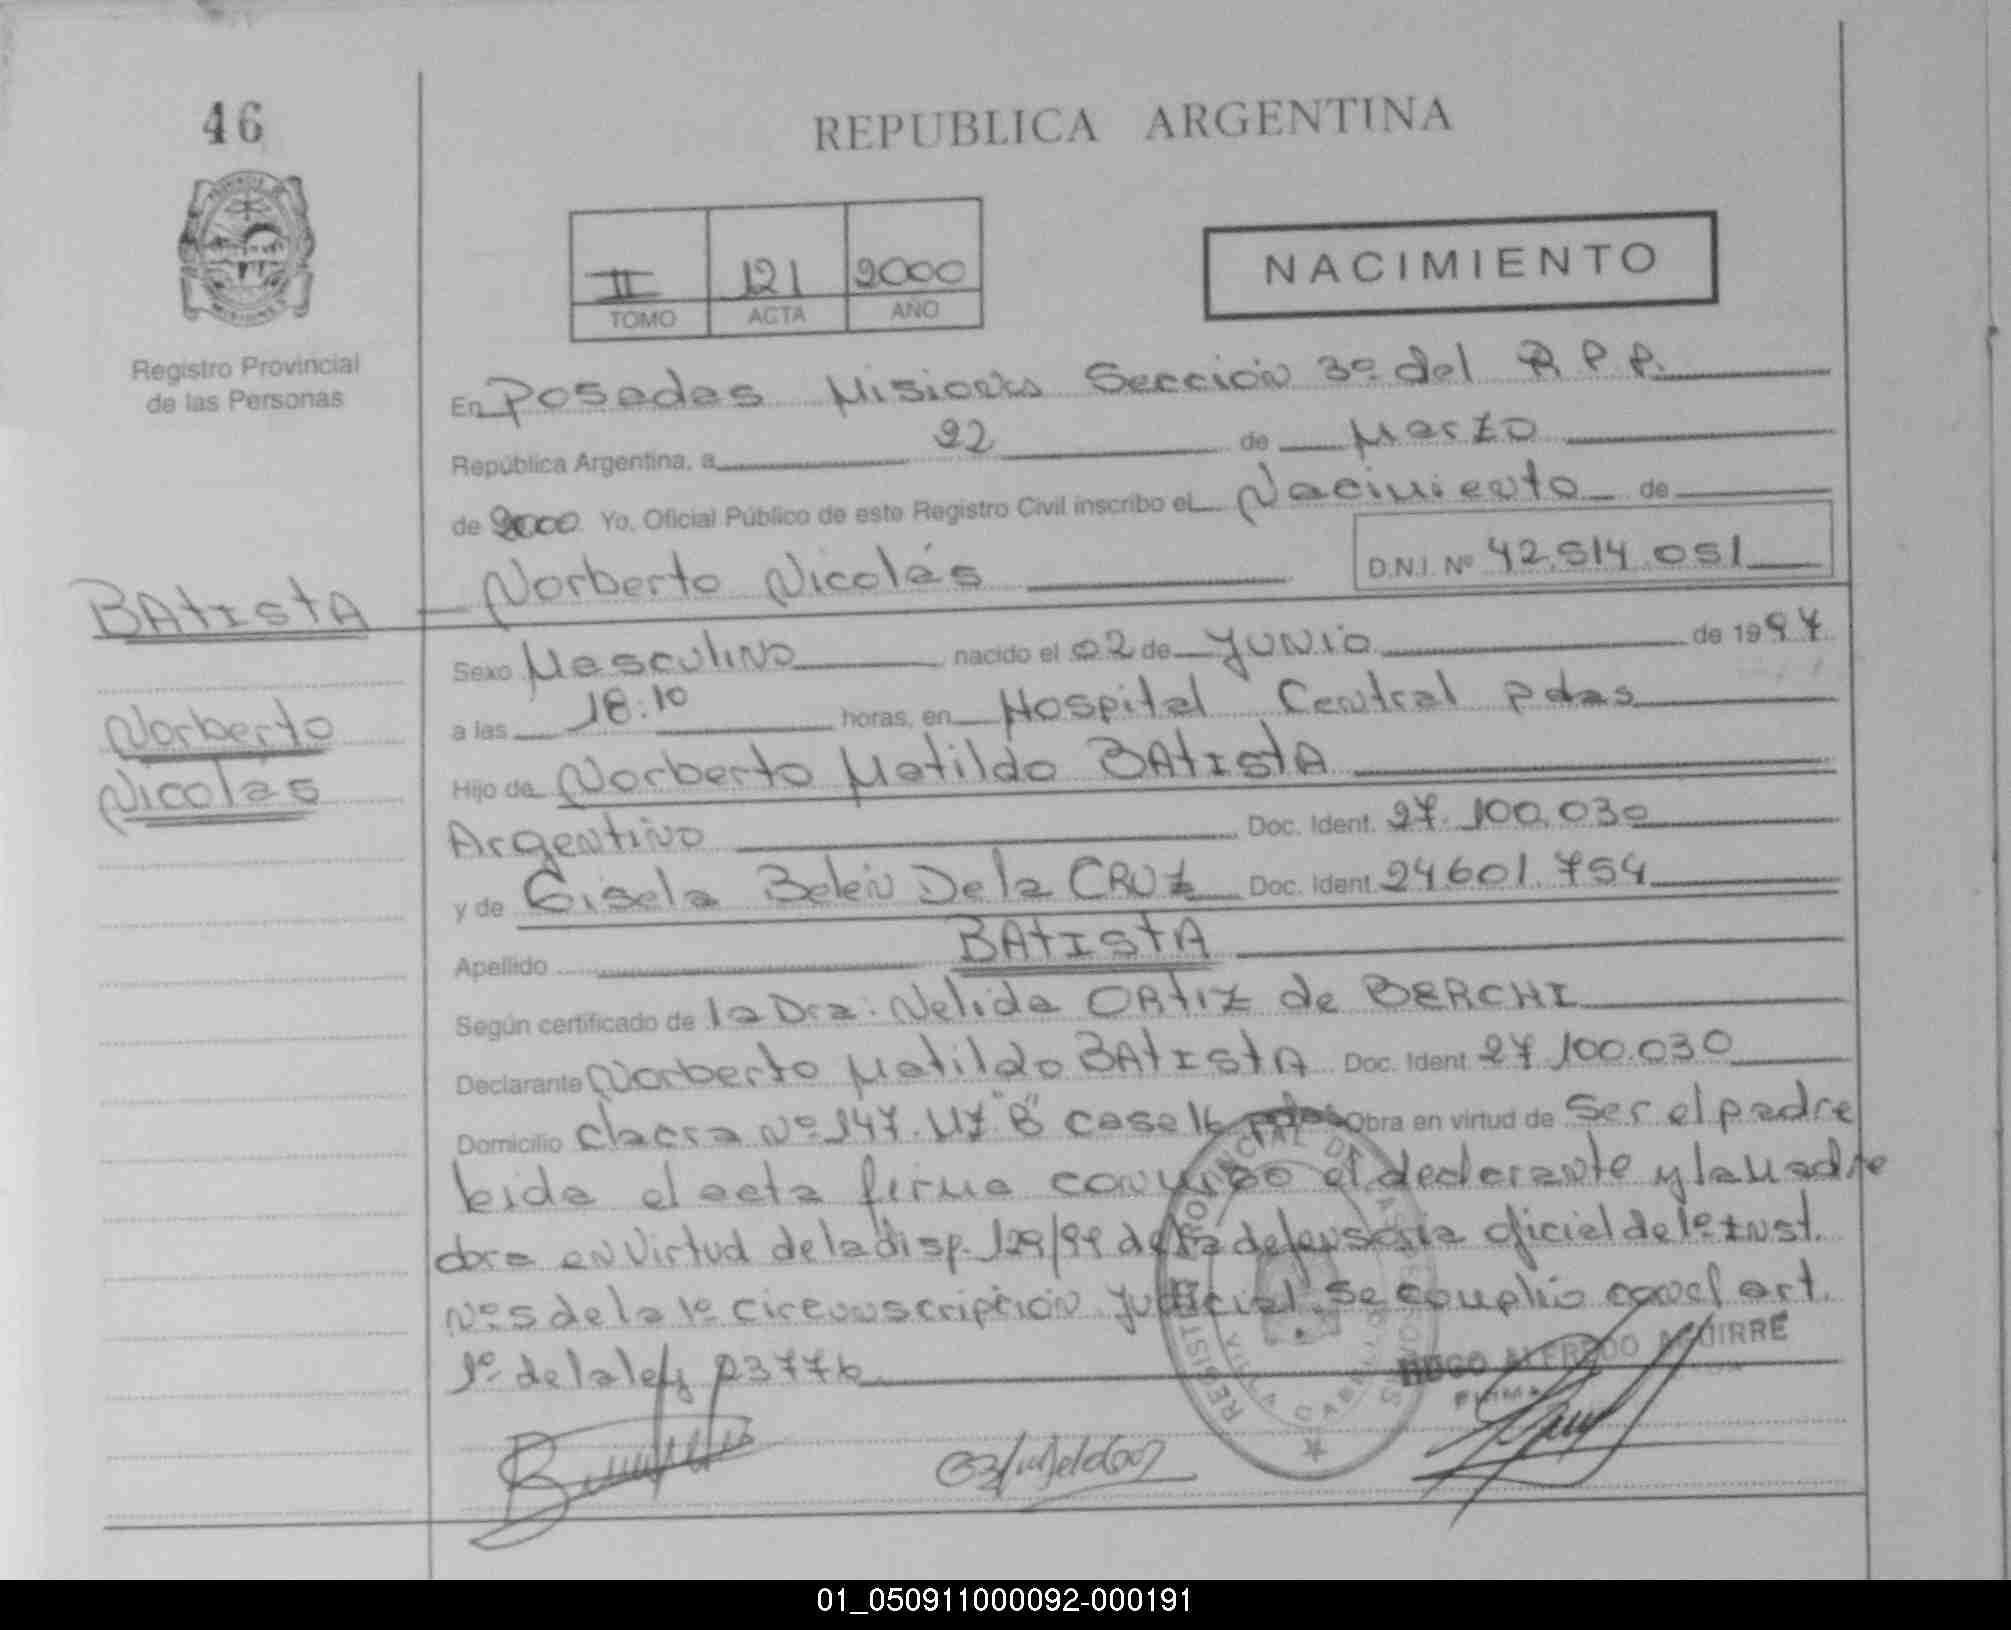 46
REPUBLICA ARGENTINA
II 121 2000
TOMO ACTA AÑO
NACIMIENTO
Registro Provincial
de las Personas
En Posadas Misiones Sección 3º del R.P.P.
República Argentina, a 22 de Marzo
de 2000 Yo, Oficial Público de este Registro Civil inscribo el Nacimiento de
Norberto Nicolás D.N.I. Nº 42.514.051
BATISTA
Norberto
Nicolás
Sexo Masculino nacido el 02 de Junio de 1997
a las 18:10 horas, en Hospital Central pdas
Hijo de Norberto Matildo BATISTA
Argentino Doc. Ident. 27.100.030
y de Gisela Belén De la CRUZ Doc. Ident. 24601.754
Apellido BATISTA
Según certificado de la Dra: Nelida ORTIZ de BERCHI
Declarante Norberto Matildo BATISTA Doc. Ident. 27.100.030
Domicilio chacra Nº 147 "B" casa 16 pdas Obra en virtud de Ser el padre
leida el acta firma conmigo el declarante y la Madre
obra en virtud de la disp. 129/99 de la defensoria oficial de 1º Inst.
Nº 5 de la 1º circunscripción Judicial. Se cumplió con el art.
1º de la ley 23776
HUGO ALFREDO AGUIRRE
FIRMA
REGISTRO PROVINCIAL DE LAS PERSONAS
VILLA CABELLO
01_050911000092-000191